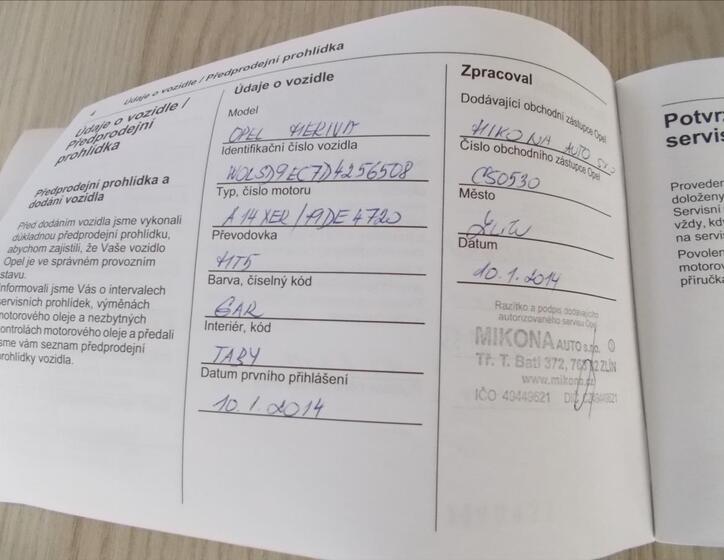 4 Údaje o vozidle / Předprodejní prohlídka
Údaje o vozidle /
Předprodejní
prohlídka
Předprodejní prohlídka a
dodání vozidla
Před dodáním vozidla jsme vykonali
důkladnou předprodejní prohlídku,
abychom zajistili, že Vaše vozidlo
Opel je ve správném provozním
stavu.
Informovali jsme Vás o intervalech
servisních prohlídek, výměnách
motorového oleje a nezbytných
kontrolách motorového oleje a předali
jsme vám seznam předprodejní
prohlídky vozidla.
Údaje o vozidle
Model
OPEL MERIVA
Identifikační číslo vozidla
W0LSD9EC7D4256508
Typ, číslo motoru
A14XER/19DE4720
Převodovka
MT5
Barva, číselný kód
GAR
Interiér, kód
TABY
Datum prvního přihlášení
10.1.2014
Zpracoval
Dodávající obchodní zástupce Opel
MIKONA AUTO SRO
Číslo obchodního zástupce Opel
CS0530
Město
Zlín
Datum
10.1.2014
Razítko a podpis dodávajícího
autorizovaného servisu Opel
MIKONA AUTO s.r.o.
Tř. T. Bati 372, 763 02 ZLÍN
www.mikona.cz
IČO 49449621 DIČ CZ49449621
Potvrz
servis
Proveden
doloženy
Servisní
vždy, kdy
na servis
Povolen
motorov
příručka